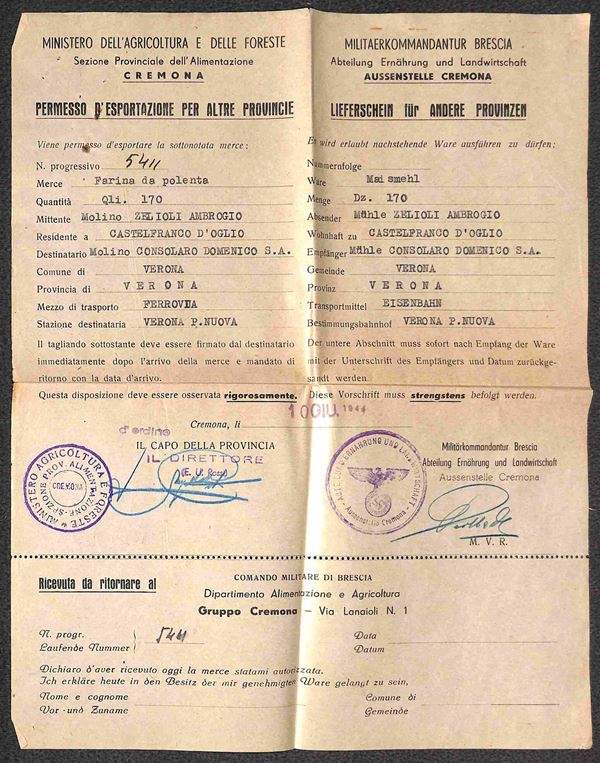 MINISTERO DELL'AGRICOLTURA E DELLE FORESTE
Sezione Provinciale dell'Alimentazione
CREMONA
PERMESSO D'ESPORTAZIONE PER ALTRE PROVINCIE
Viene permesso d'esportare la sottonotata merce:
N. progressivo 5411
Merce Farina da polenta
Quantità Qli. 170
Mittente Molino ZELIOLI AMBROGIO
Residente a CASTELFRANCO D'OGLIO
Destinatario Molino CONSOLARO DOMENICO S.A.
Comune di VERONA
Provincia di VERONA
Mezzo di trasporto FERROVIA
Stazione destinataria VERONA P.NUOVA
Il tagliando sottostante deve essere firmato dal destinatario
immediatamente dopo l'arrivo della merce e mandato di
ritorno con la data d'arrivo.
Questa disposizione deve essere osservata rigorosamente.
MILITAERKOMMANDANTUR BRESCIA
Abteilung Ernährung und Landwirtschaft
AUSSENSTELLE CREMONA
LIEFERSCHEIN für ANDERE PROVINZEN
Es wird erlaubt nachstehende Ware ausführen zu dürfen:
Nummernfolge
Ware Maismehl
Menge Dz. 170
Absender Mühle ZELIOLI AMBROGIO
Wohnhaft zu CASTELFRANCO D'OGLIO
Empfänger Mühle CONSOLARO DOMENICO S.A.
Gemeinde VERONA
Provinz VERONA
Transportmittel EISENBAHN
Bestimmungsbahnhof VERONA P.NUOVA
Der untere Abschnitt muss sofort nach Empfang der Ware
mit der Unterschrift des Empfängers und Datum zurückge-
sandt werden
Diese Vorschrift muss strengstens befolgt werden.
Cremona, li 10 GIU. 1944
d'ordine
IL CAPO DELLA PROVINCIA
IL DIRETTORE
MINISTERO AGRICOLTURA E FORESTE
SEZIONE PROV. ALIMENTAZIONE
CREMONA
ERNÄHRUNG UND LANDWIRTSCHAFT
Aussenstelle Cremona
Militärkommandantur Brescia
Abteilung Ernährung und Landwirtschaft
Aussenstelle Cremona
M. V. R.
Ricevuta da ritornare al
COMANDO MILITARE DI BRESCIA
Dipartimento Alimentazione e Agricoltura
Gruppo Cremona – Via Lanaioli N. 1
N. progr.
Laufende Nummer 5411
Data
Datum
Dichiaro d'aver ricevuto oggi la merce statami autorizzata.
Ich erkläre heute in den Besitz der mir genehmigten Ware gelangt zu sein.
Nome e cognome
Vor -und Zuname
Comune di
Gemeinde